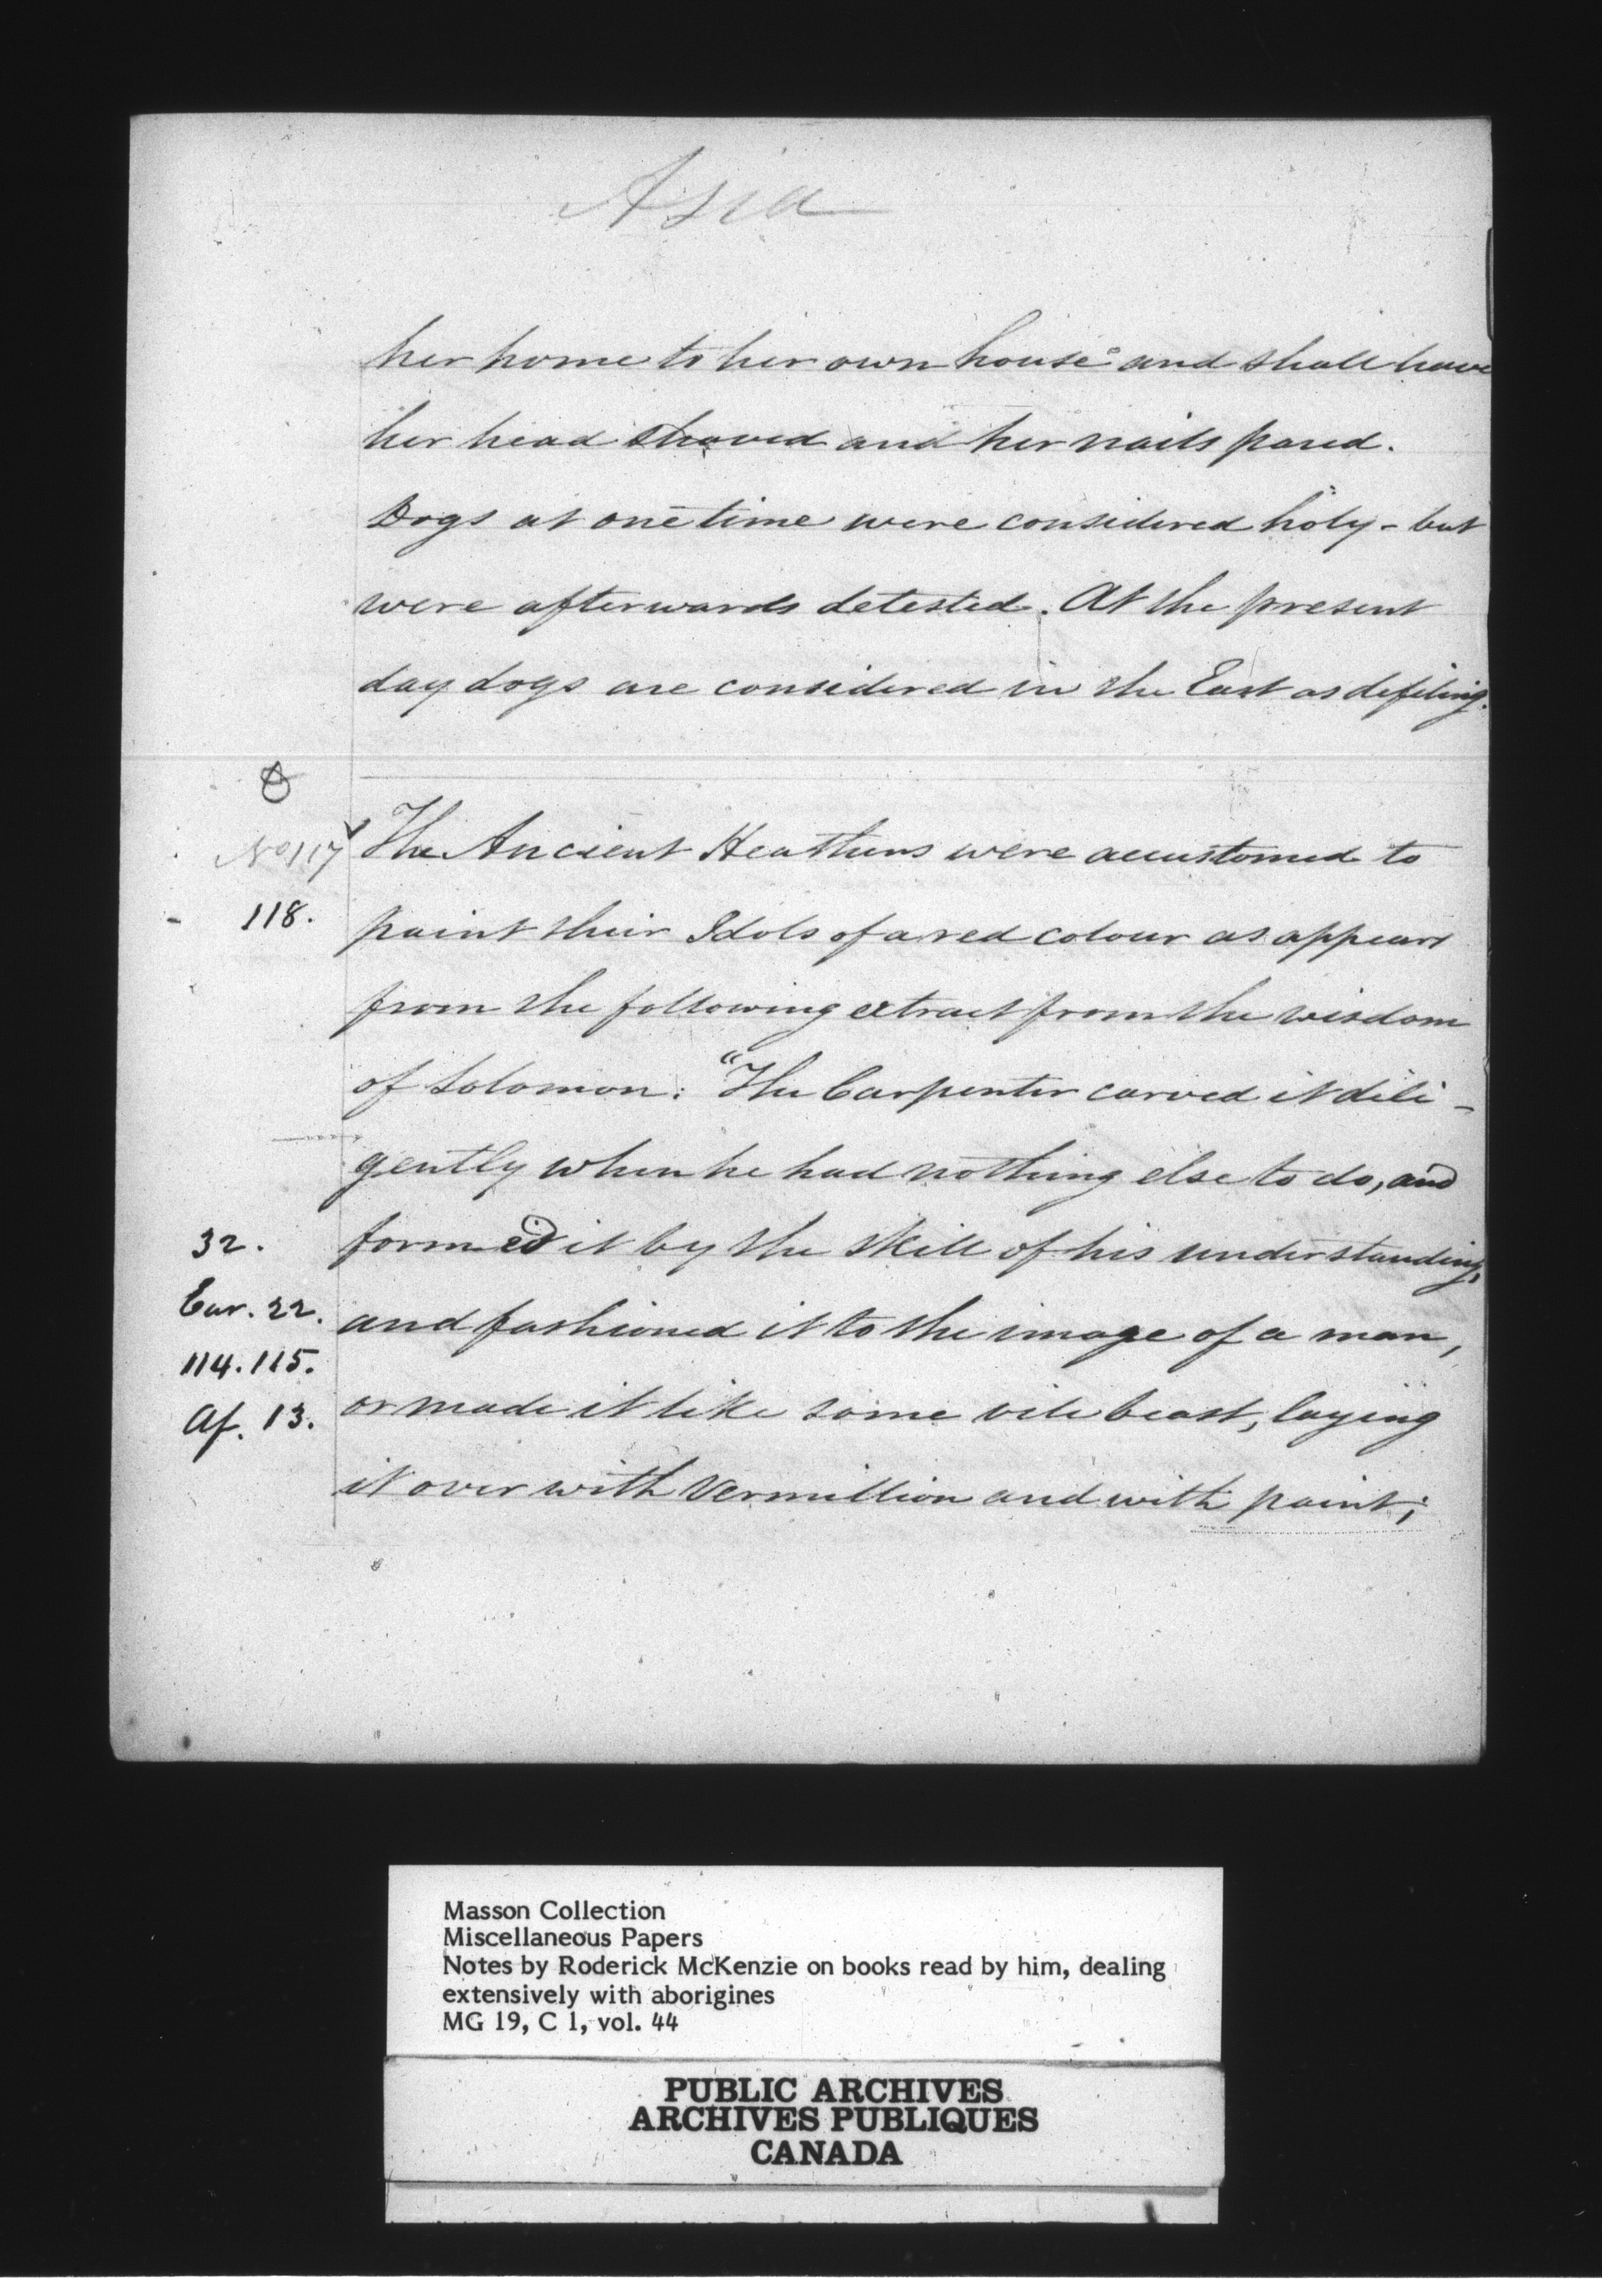 Asia
her home to her own house and shall have
her head shaved and her nails pared.
Dogs at one time were considered holy - but
were afterwards detested. At the present
day dogs are considered in the East as defiling.
No 117 The Ancient Heathens were accustomed to
118. paint their Idols of a red colour as appears
from the following extract from the wisdom
of Solomon: "The Carpenter carved it dili-
gently when he had nothing else to do, and
32. formed it by the skill of his understanding,
Eur. 22. and fashioned it to the image of a man,
114. 115.
Af. 13. or made it like some vile beast, laying
it over with Vermillion and with paint;
Masson Collection
Miscellaneous Papers
Notes by Roderick McKenzie on books read by him, dealing
extensively with aborigines
MG 19, C 1, vol. 44
PUBLIC ARCHIVES
ARCHIVES PUBLIQUES
CANADA